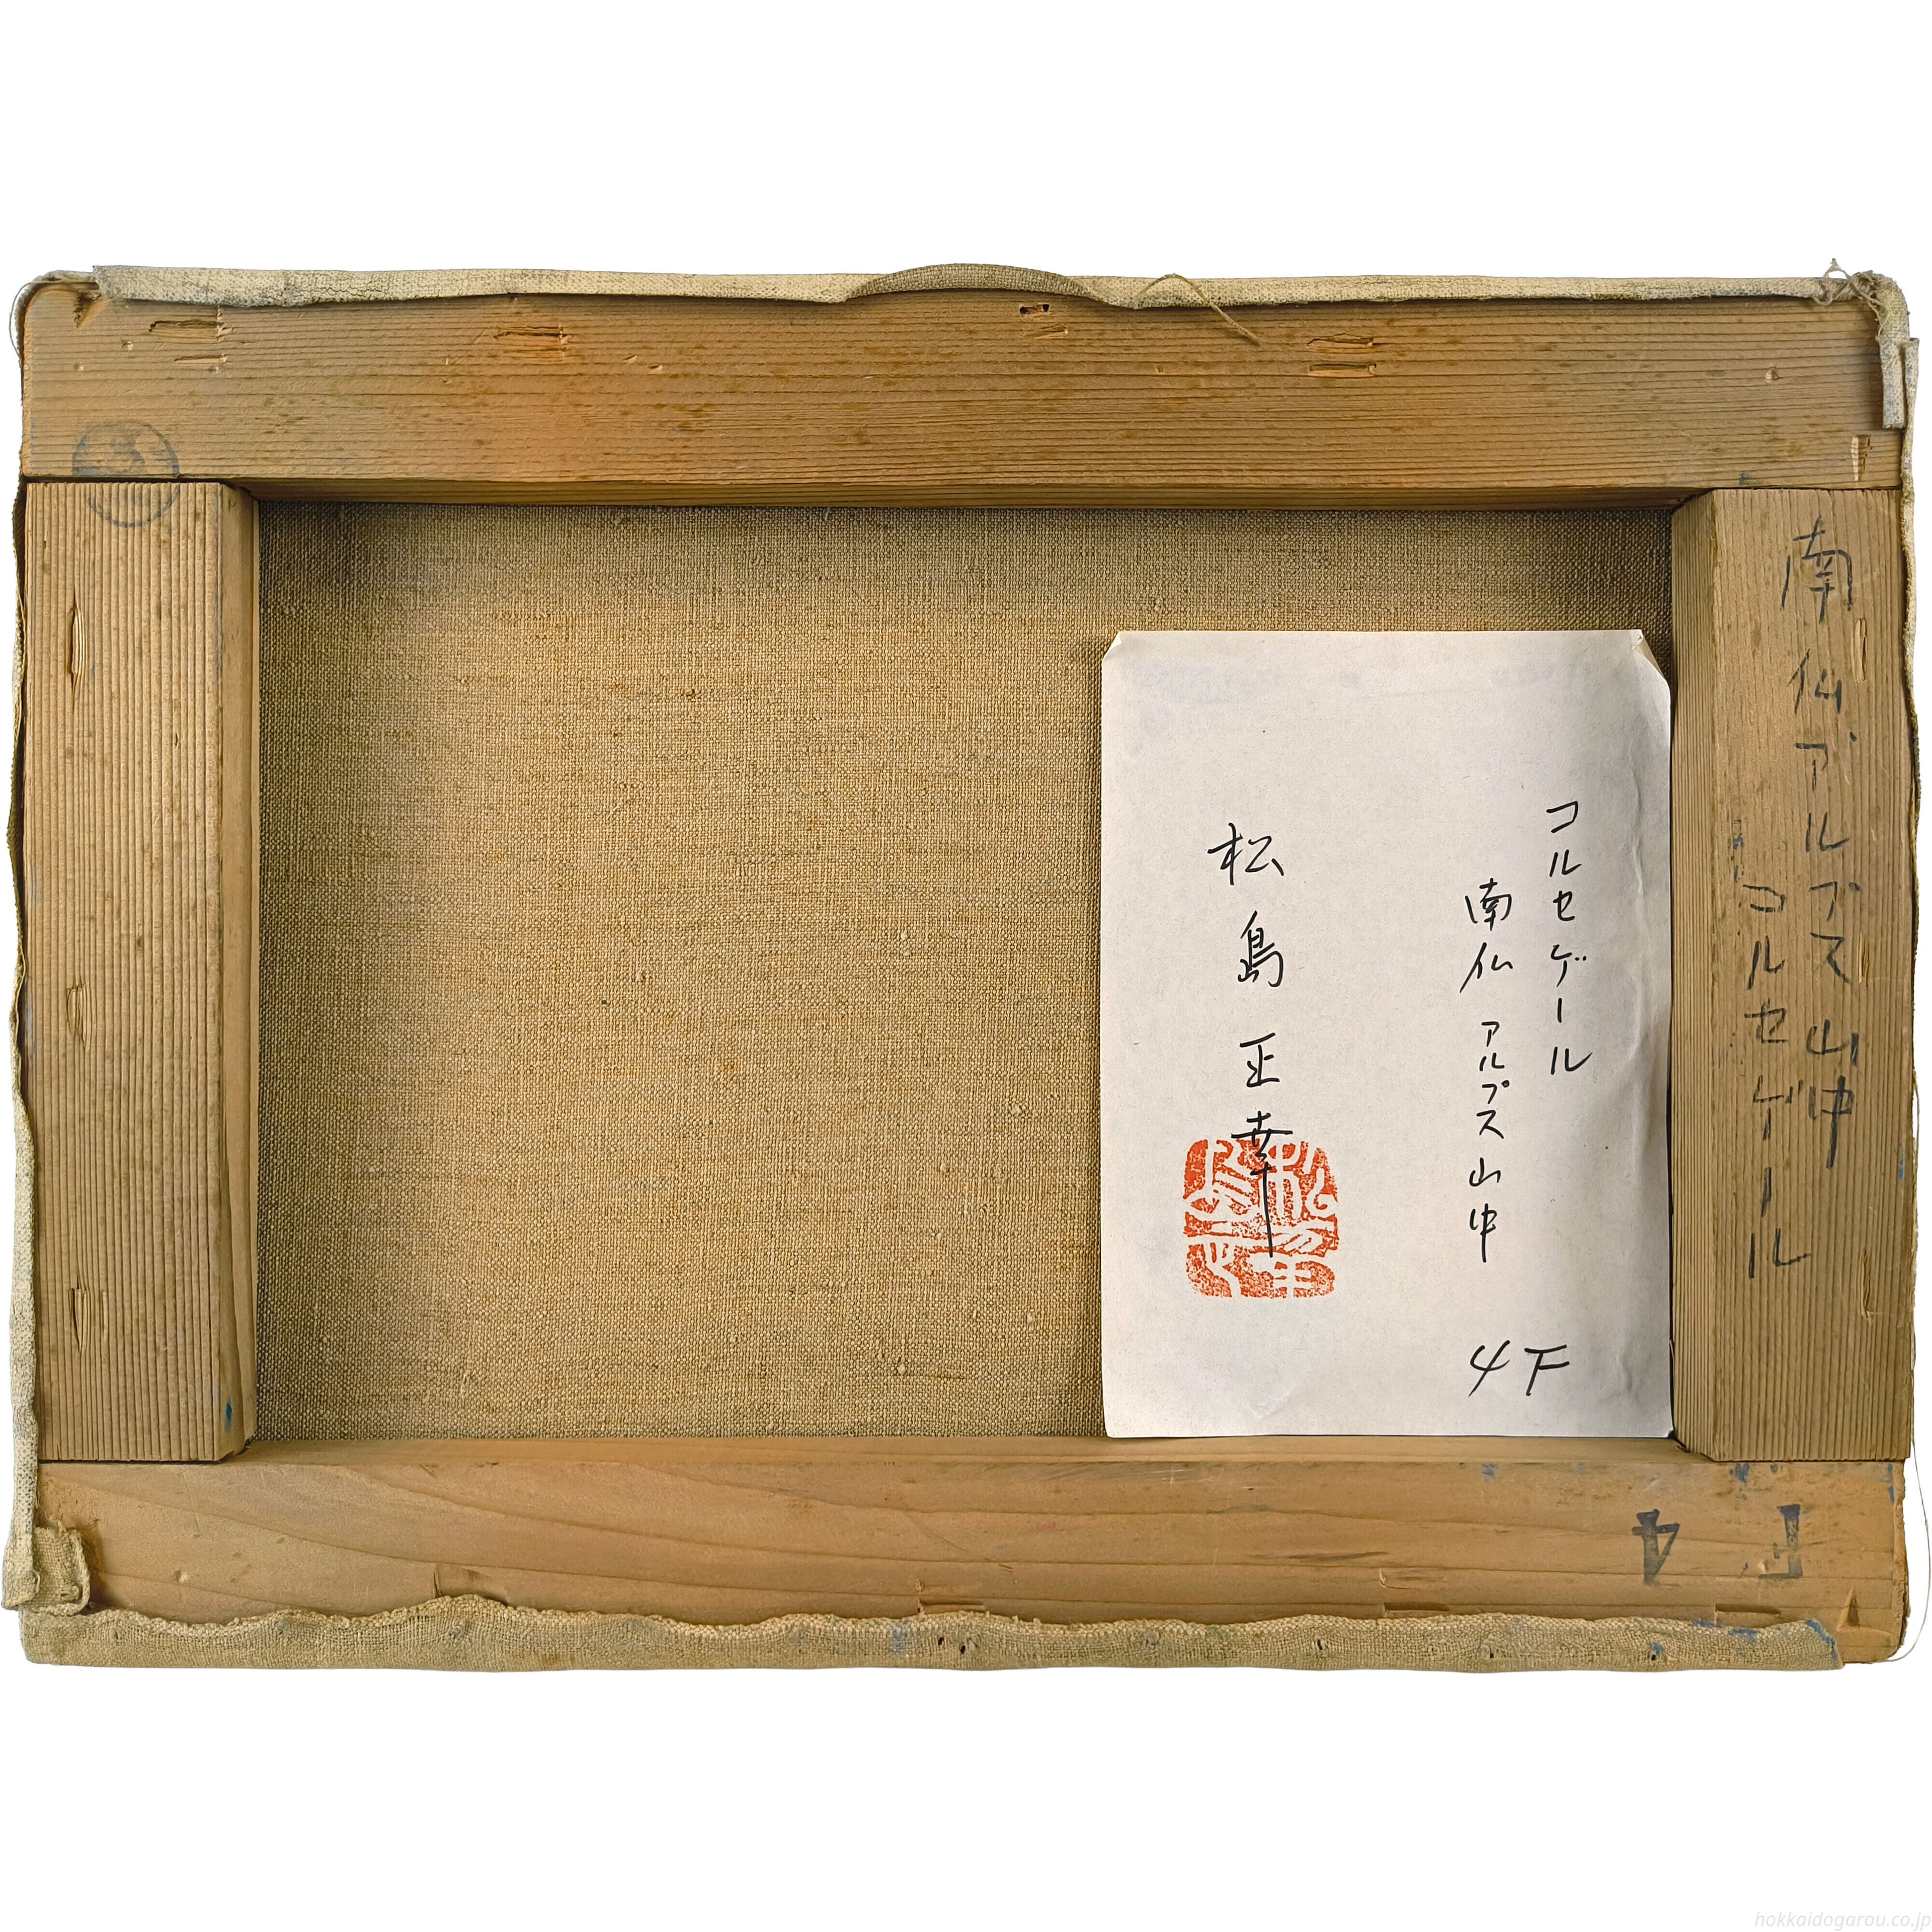 南仏アルプス山中
コルセゲール
コルセゲール
南仏 アルプス山中
4F
松島正幸
F 4
hokkaidogarou.co.jp